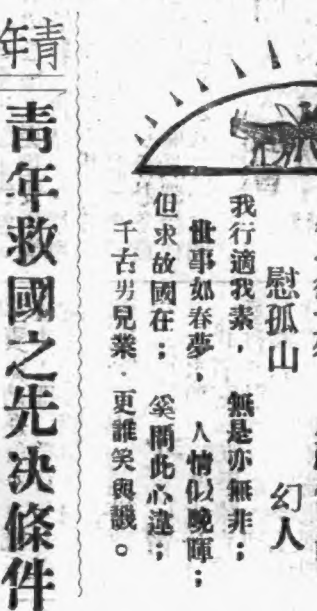 慰孤山 幻人
我行適我素，無是亦無非；
世事如春夢，人情似晚暉；
但求故國在；奚問此心違；
千古男兒業．更誰笑與譏。
青年
青年救國之先决條件